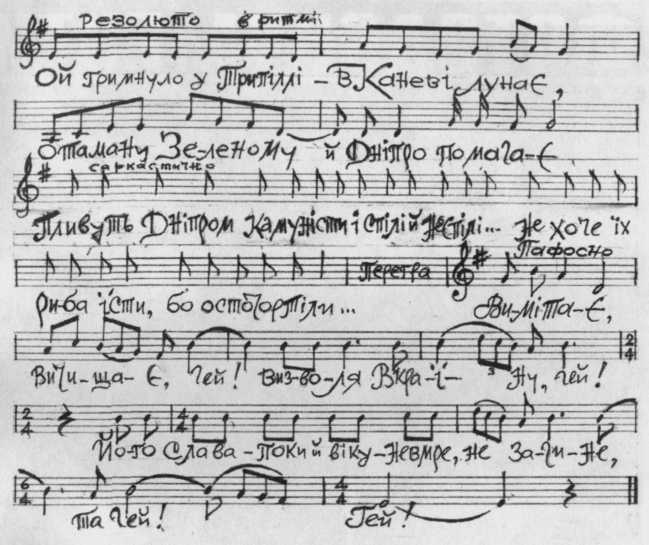 резолюто в ритмі
Ой гримнуло у Трипіллі – в Каневі лунає,
Отаману Зе-леному й Дніпро помага-є
саркастично
Пливуть Дніпром камуністи і спілі й неспілі... не хоче їх
Перегра Пафосно
ри-ба їсти, бо остогортіли... Ви-міта-є,
Вичи-ща-є, гей! визво-ля Вкра-ї- 3 ну, гей! 2 4
2 4 4 4 Йо-го слава-поки й віку-невмре, не за-ги-не,
6 4 4 4
та гей! Гей!